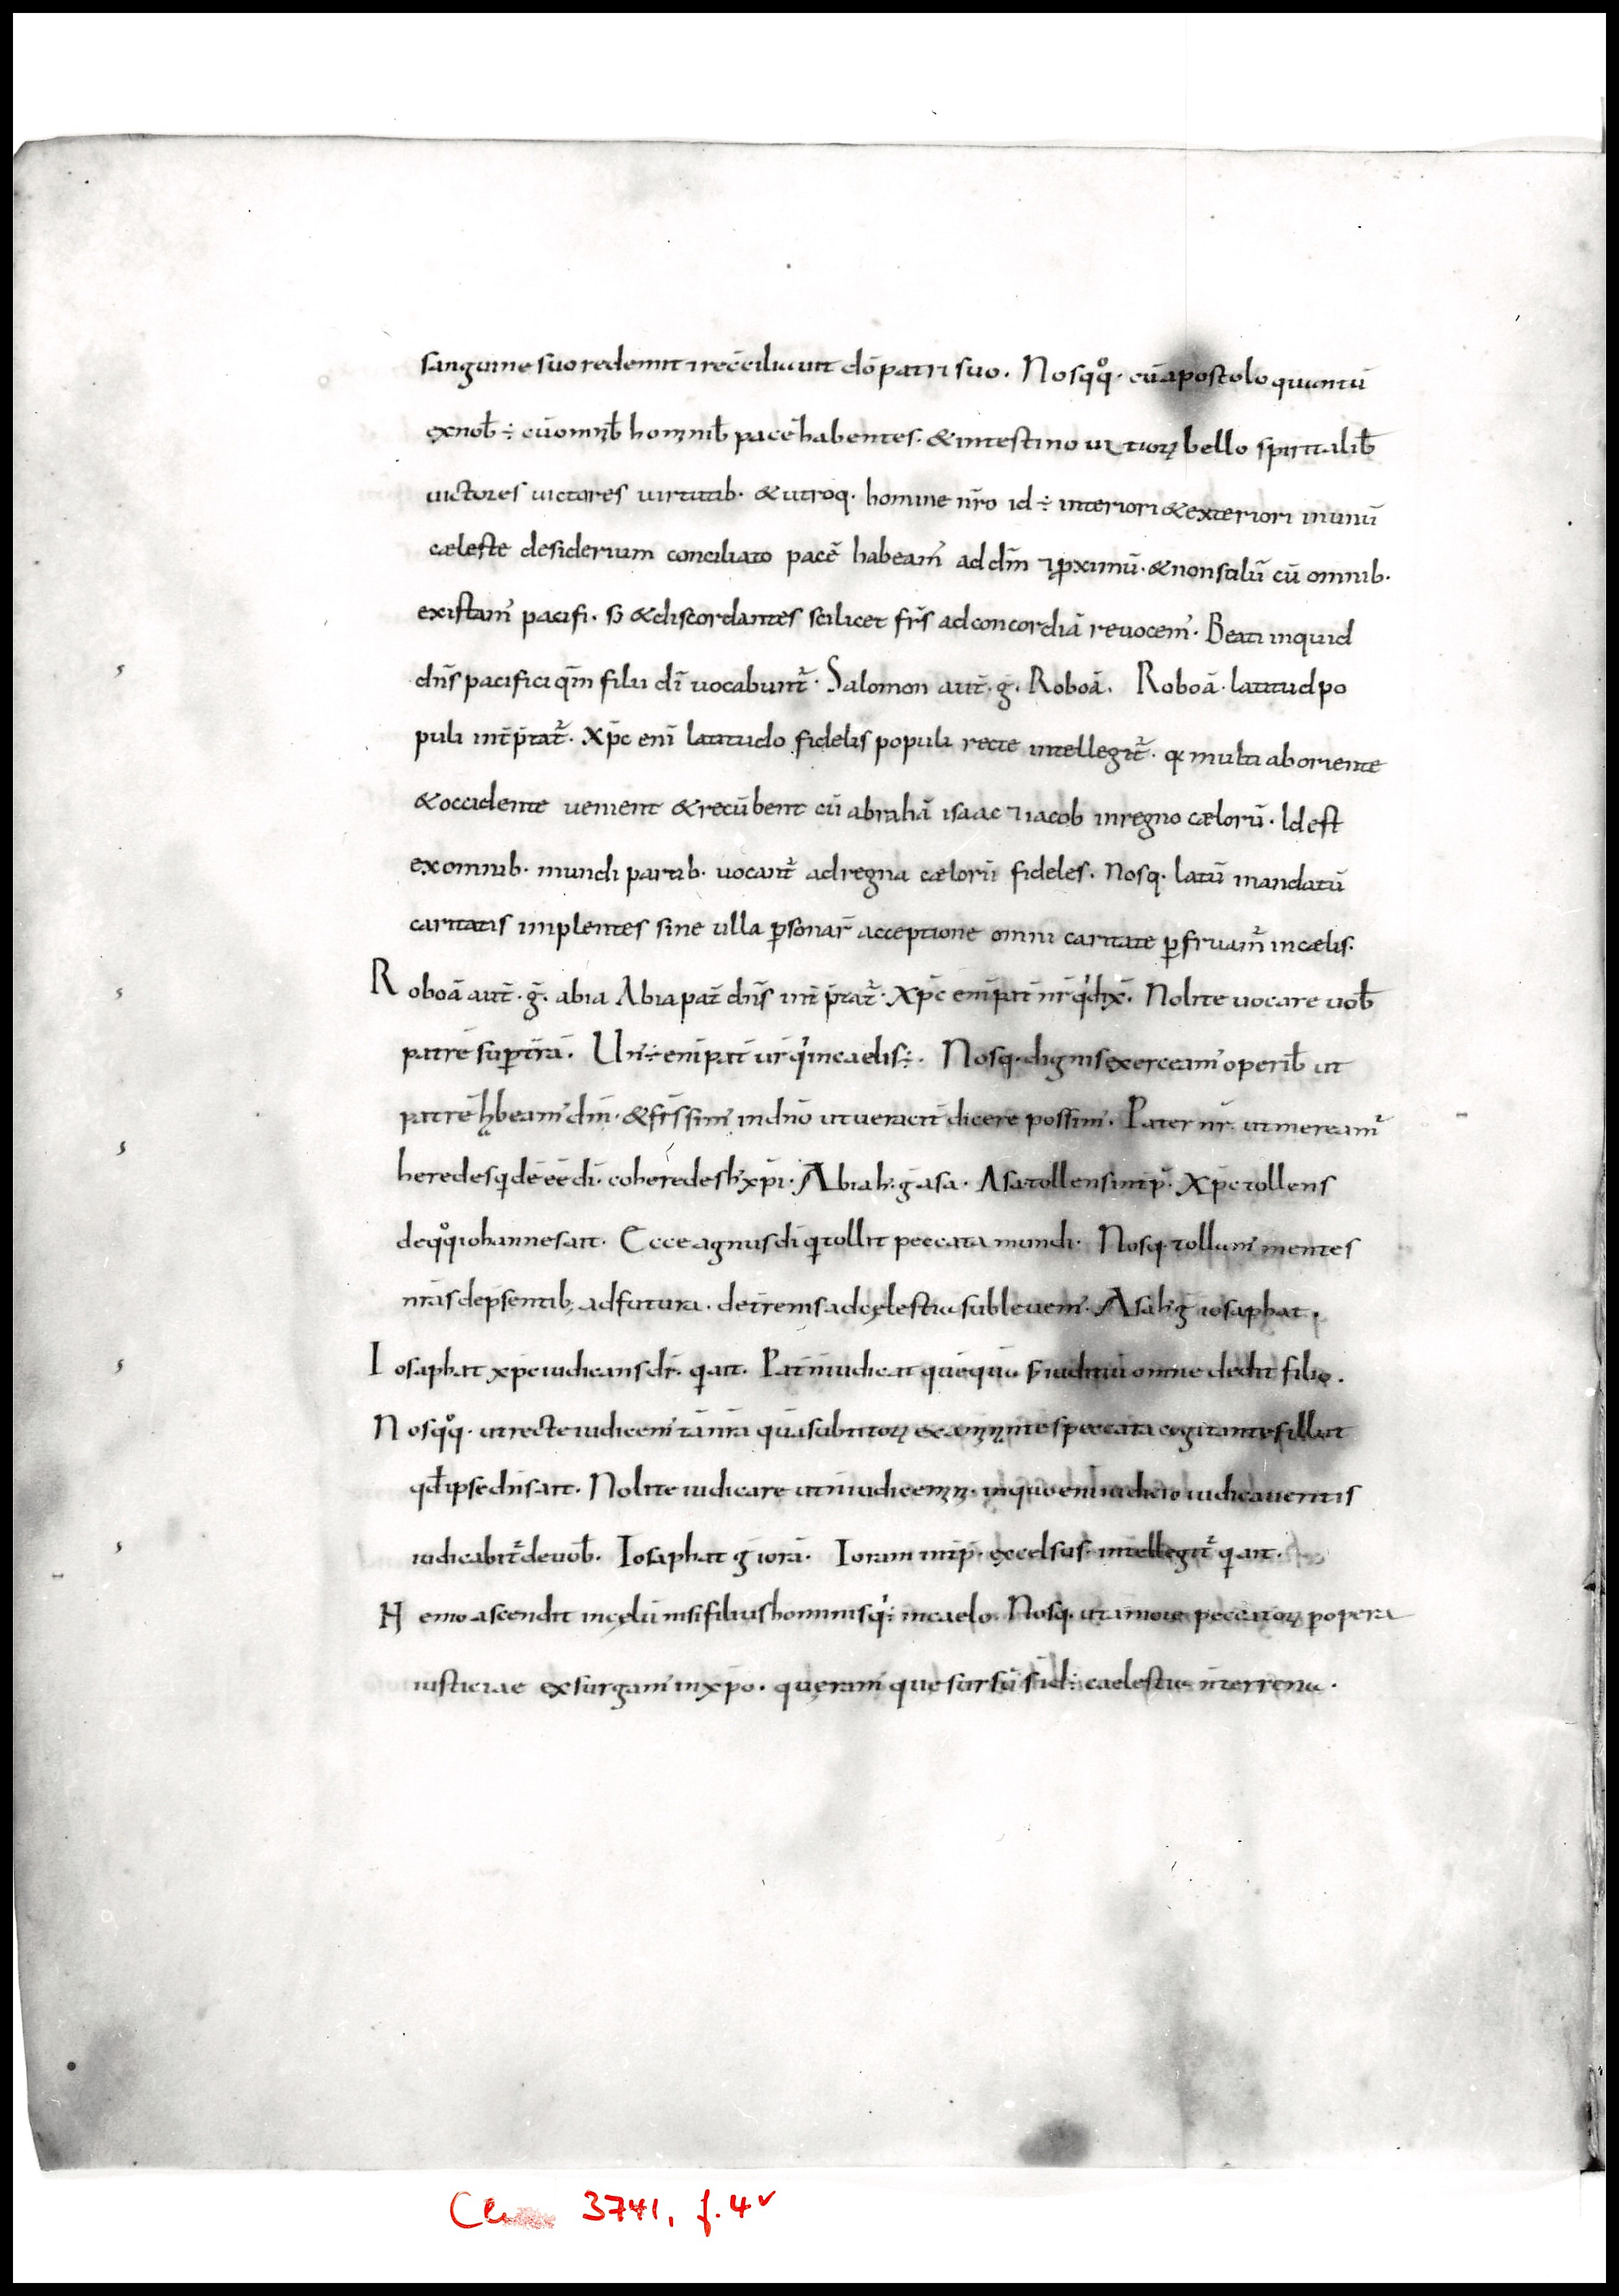 sanguine suo redemit ⁊ recc̄iliauit dō patri suo. Nos qq̊. cū apostolo quantū
ex nob̄ ÷ cū omīb̄ hominib̄ pacē habentes. & intestino uitiorꝝ bello spiritalib̄
uictores uictores uirtutib. & utroq. homine nr̄o id ÷ interiori & exteriori inunū
cæleste desiderium conciliato pacē habeam᾿ ad dm̄ ⁊ ꝓximū. & non solū cū omnib.
existam᾿ pacifi. s; & discordantes scilicet fr̄s ad concordiā reuocem᾿. Beati inquid
dn̄s pacifici qm̄ filii dī uocabunt᷑. Salomon aut̄. g̅. Roboā. Roboā. latitud po
puli int̄p̄tat᷑. Xp̄c enī latitudo fidelis populi recte intellegit᷑. qa multi ab oriente
& occidente uenient & recūbent cū abrahā isaac ⁊ iacob in regno cælorū. Id est
ex omnib. mundi partib. uocant᷑ ad regna cælorū fideles. Nosq. latū mandatū
caritatis implentes sine ulla ꝑsonar̄ acceptione omni caritate ꝑfruam᷑ in cælis.
Roboā aut̄. g̅. abia Abia pat̄ dn̄s int̄ p̄tat᷑. Xp̄c enī pat̄ nr̄ q᾿ dix̄. Nolite uocare uob̄
patrē suꝑ t̄rā. Un᾿ ÷ enī pat̄ ur̄ q᾿ in caelis ÷. Nosq. dignis exerceam᾿ operib̄ ut
patrē hbeam᾿ dm̄. & fr̄s sim᾿ in dn̄o ut ueracit̄ dicere possim᾿. Pater nr̄. ut meream᷑
heredes qdē eē dī. coheredes h᾿ xp̄i. Abia h᾿. g̅ asa. Asa tollens int̄p᷑. Xp̄c tollens
de qq̊ iohannes ait. Ecce agnus dī q᾿ tollit peccata mundi. Nosq. tollam᾿ mentes
nr̄as de p̄sentib; ad futura. de t̄renis ad cęlestia subleuem᾿. Asa h᾿ g̅ iosaphat.
Iosaphat xp̄c iudicans dr̄. q᾿ ait. Pat̄ n̄ iudicat quēquā s; iuditiū omne dedit filio.
Nos qq̊. ut recte iudicem᾿ tā nr̄a quā subditorꝝ examinntes peccata cogitantes illut
qd̄ ipse dn̄s ait. Nolite iudicare ut n̄ iudicemini. in quo enī iudicio iudicaueritis
iudicabit᷑ de uob̄. Iosaphat g̅ iorā. Ioram int̄p̄. excelsus. intellegit᷑ q᾿ ait.
Nemo ascendit in cęlū nisi filius hominis q᾿ ÷ in caelo. Nosq. ut a morte peccatorꝝ ꝑ opera
iusticiae exsurgam᾿ in xp̄o. queram᾿ que sursū s̄ id ÷ caelestia n̄ terrena.
Clm 3741, f. 4v